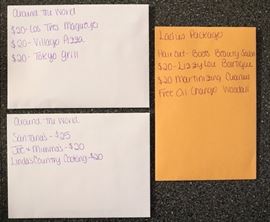 Around The World
$20-Los Tres Magueys
$20-Village Pizza
$20-Tokyo Grill
Around the World
Santana's-$25
Joe + Mimma's-$20
Linda's Country Cooking-$20
Ladies Package
Haircut-Boots Beauty Salon
$20-Lizzy Lou Boutique
$20 Martinizing Cleaners
Free Oil Change Woodall